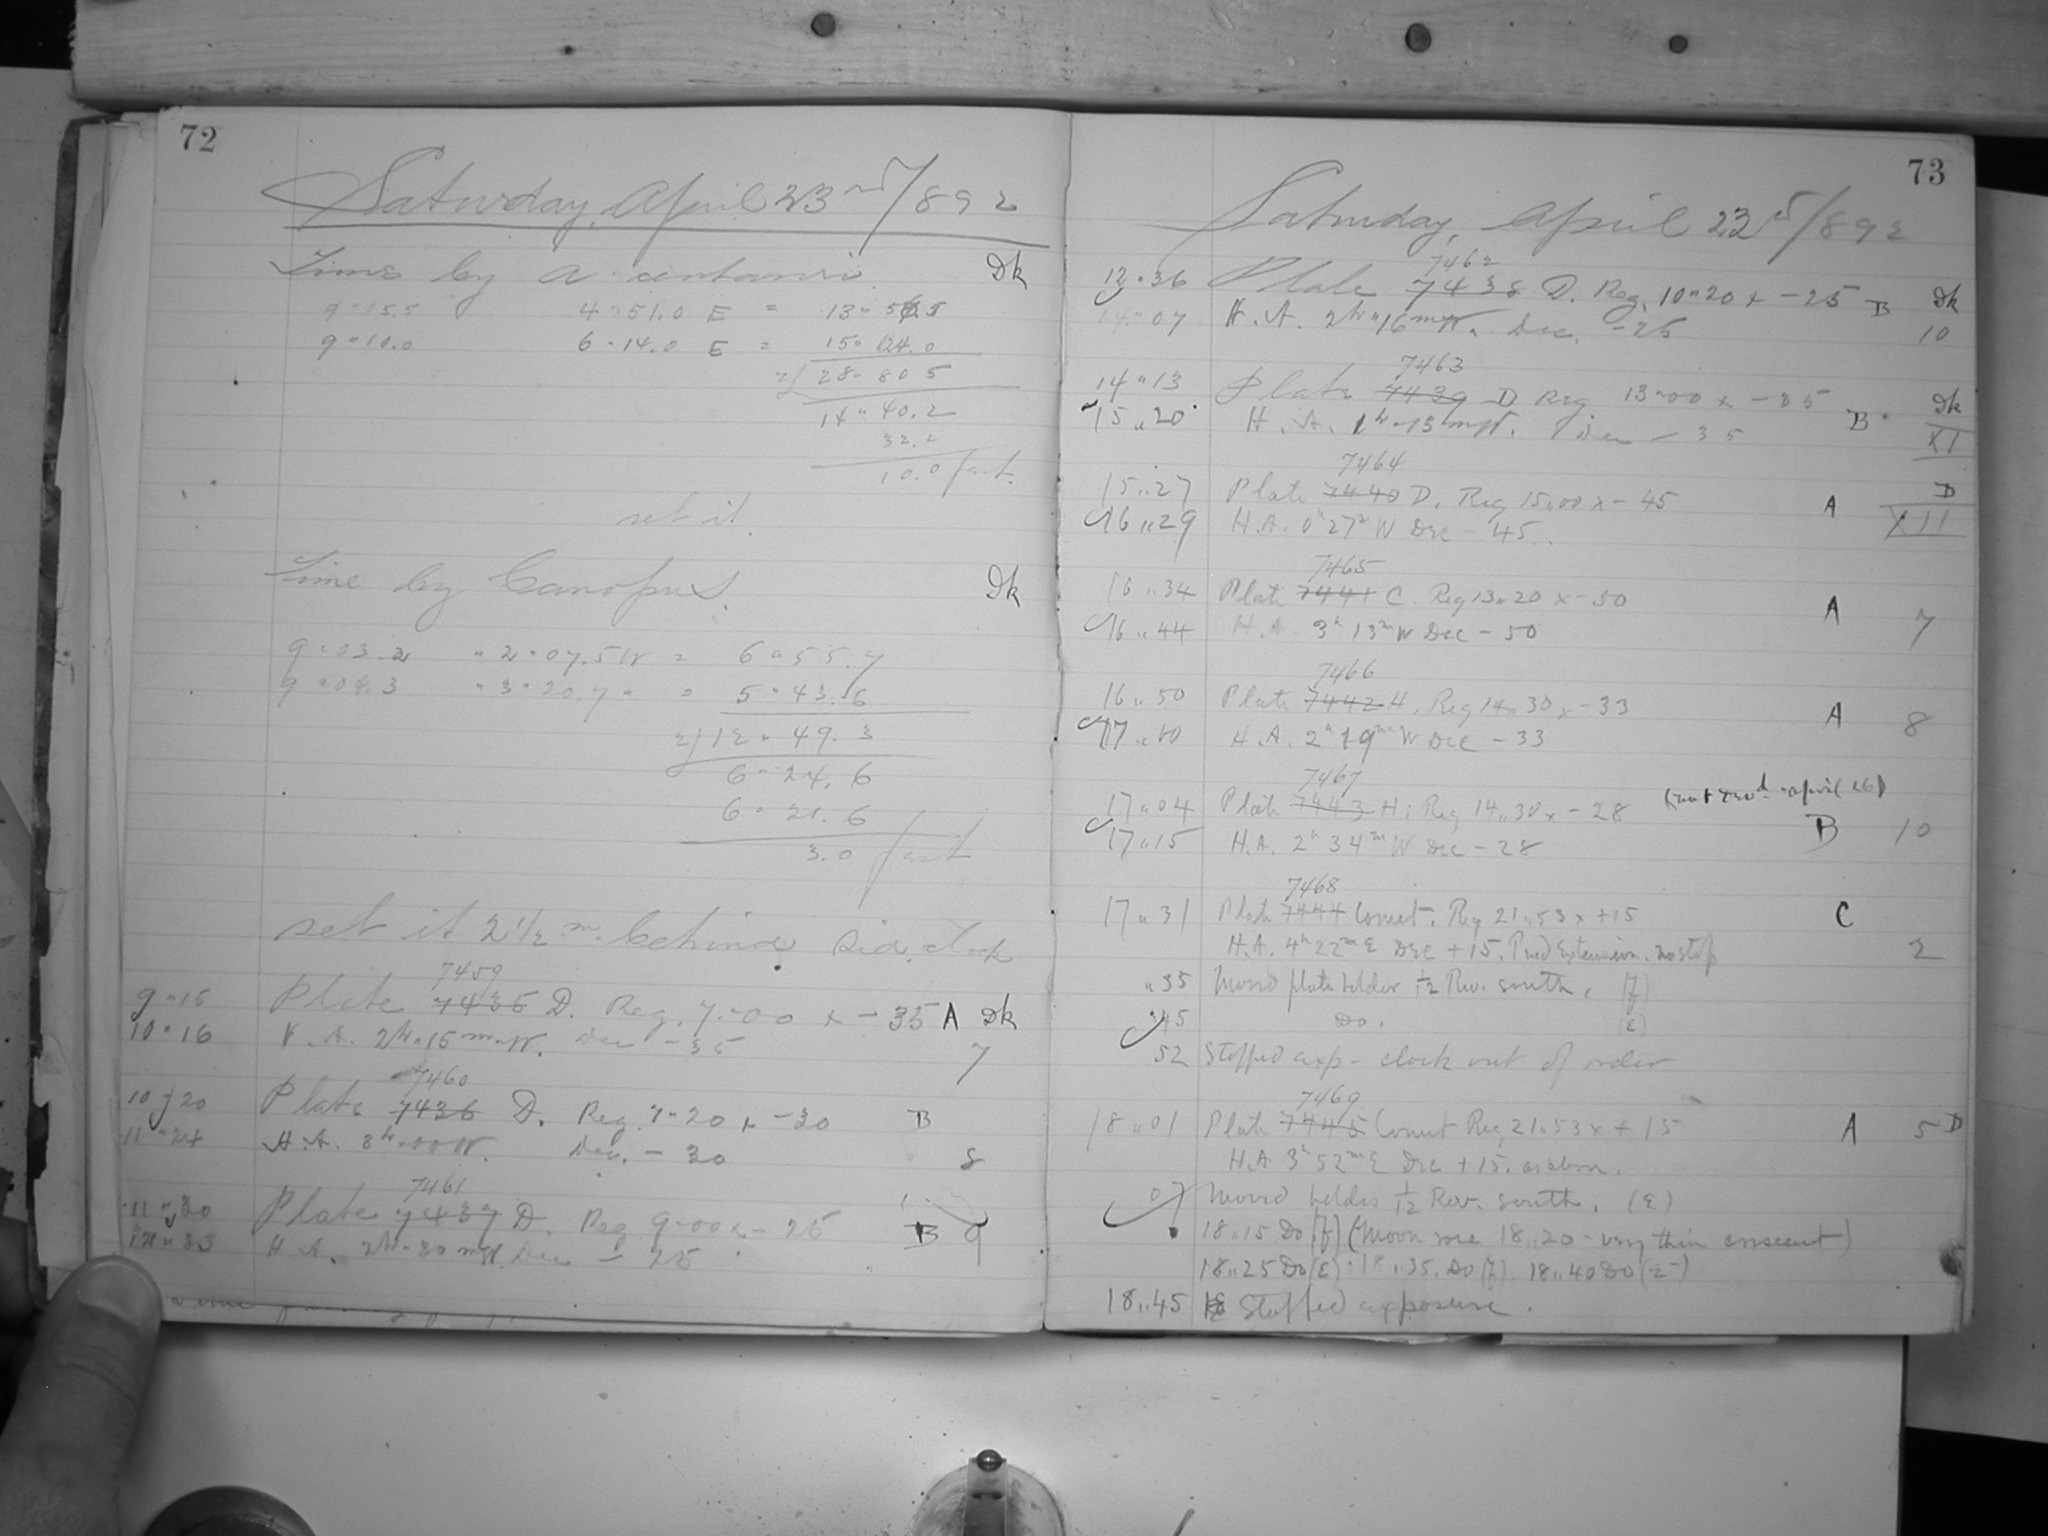 72
Saturday, April 23rd 1892
Time by a centauri Dk
9 " 15.5 4 " 51.0 E = 13 " 56.5
9 " 10.0 6 " 14.0 E = 15 " 24.0
2) 28 " 80 5
14 " 40.2
10.0 fast.
set it.
Time by Canopus. Dk
9 " 03.2 " 2 " 07.5 W = 6 " 55.7
9 " 04.3 " 3 " 20.7 " = 5 " 43.6
2) 12 " 49.3
6 " 24.6
6 " 21.6
3.0 fast
set it 2 1/2 m. behind Sid. clock
7459
9 " 15 Plate 7435 D. Reg. 7 " 00 x - 35 A Dk
10 " 16 H. A. 2h " 15 m W. Dec - 35 7
7460
10 " 20 Plate 7436 D. Reg. 7 " 20 x - 30 B
11 " 24 H. A. 3h " 00 W. Dec. - 30 8
7461
11 " 30 Plate 7437 D. Reg. 9 " 00 x - 25 B 9
12 " 33 H. A. 2h " 30 m W. Dec - 25
73
Saturday, April 23d 1892
7462
12 " 36 Plate 7438 D. Reg. 10 " 20 x - 25 B Dk
14 " 07 H. A. 2h " 16 m W. Dec. - 25 10
7463
14 " 13 Plate 7439 D Reg. 13 " 00 x - 35 B Dk
15 " 20 H. A. 1h " 13 m W. Dec - 35 XI
7464
15 " 27 Plate 7440 D. Reg 15 " 00 x - 45 A D
16 " 29 H.A. 0h 27m W Dec - 45. XII
7465
16 " 34 Plate 7441 C. Reg 13 " 20 x - 50 A
16 " 44 H. A. 3h 13m W Dec - 50 7
7466
16 " 50 Plate 7442 H. Reg 14 " 30 x - 33 A
17 " 00 H. A. 2h 19m W Dec - 33 8
7467
17 " 04 Plate 7443 H: Reg 14 " 30 x - 28 (not recd - april 26)
17 " 15 H.A. 2h 34m W Dec - 28 B 10
7468
17 " 31 Plate 7444 Comet. Reg 21 " 53 x + 15 C
H.A. 4h 22m E Dec + 15. Extension. no stop 2
" 35 Moved plate holder 1/2 Rev. south. (f)
" 45 Do. (E)
52 Stopped exp - clock out of order
7469
18 " 01 Plate 7445 Comet Reg 21 " 53 x + 15 A 5 D
H.A 3h 52m E Dec + 15. as above.
07 Moved holder 1/2 Rev. south. (E)
18 " 15 Do (f) (Moon rose 18 " 20 - very thin crescent)
18 " 25 Do (E) 18 " 35. Do (f). 18 " 40 Do (E)
18 " 45 Stopped exposure.